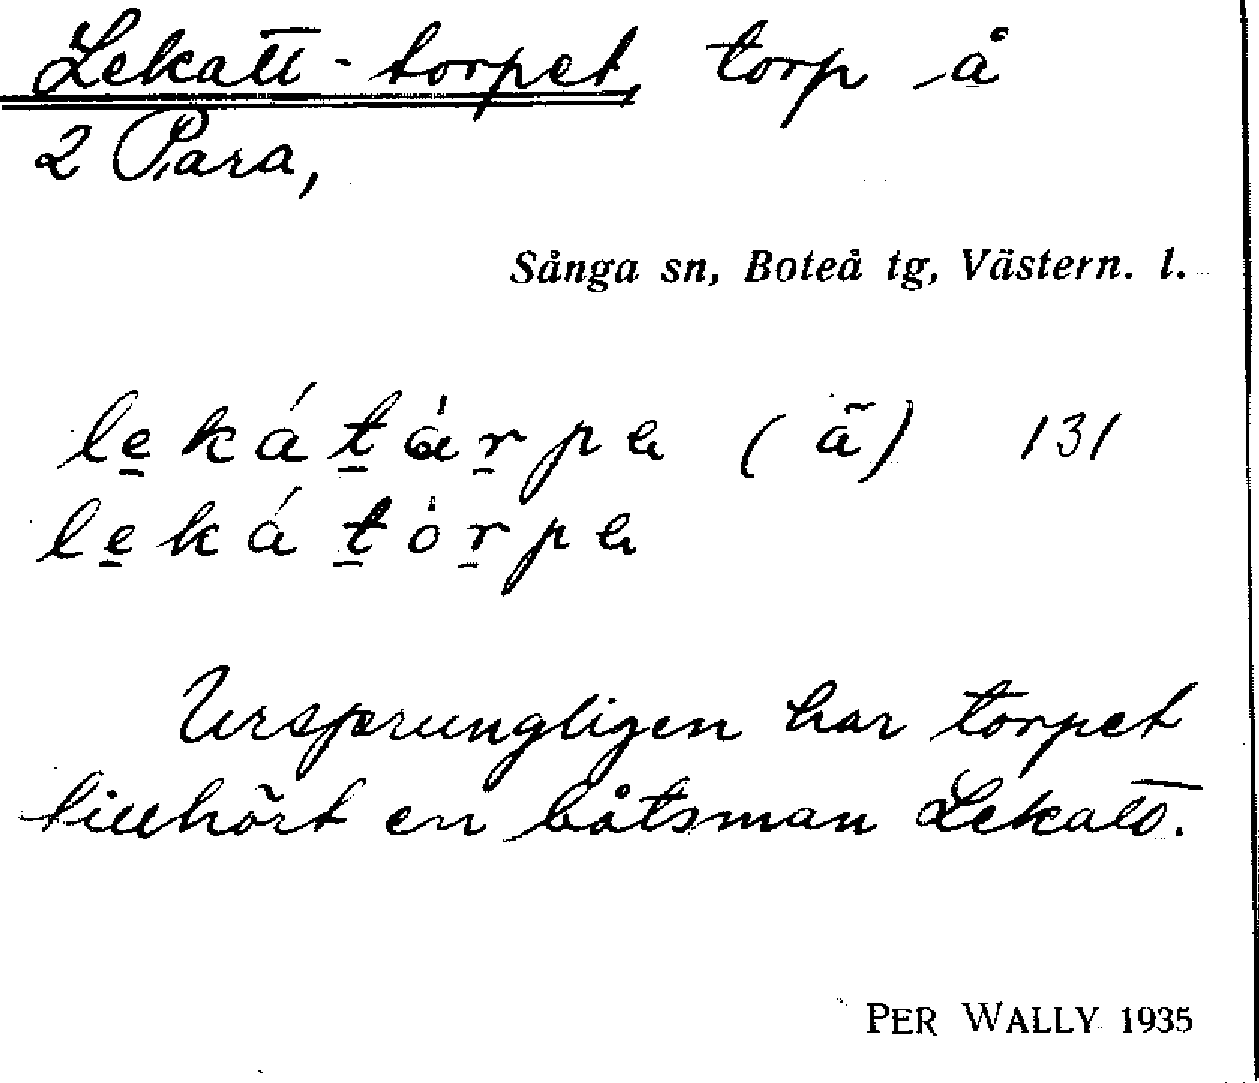 Lekatt-torpet, torp å
2 Para,
Sånga sn, Boteå tg, Västern. l.
le̱káṯàṟpɐ (ã) 131
le̱káṯòṟpɐ
Ursprungligen har torpet
tillhört en båtsman Lekatt.
PER WALLY 1935